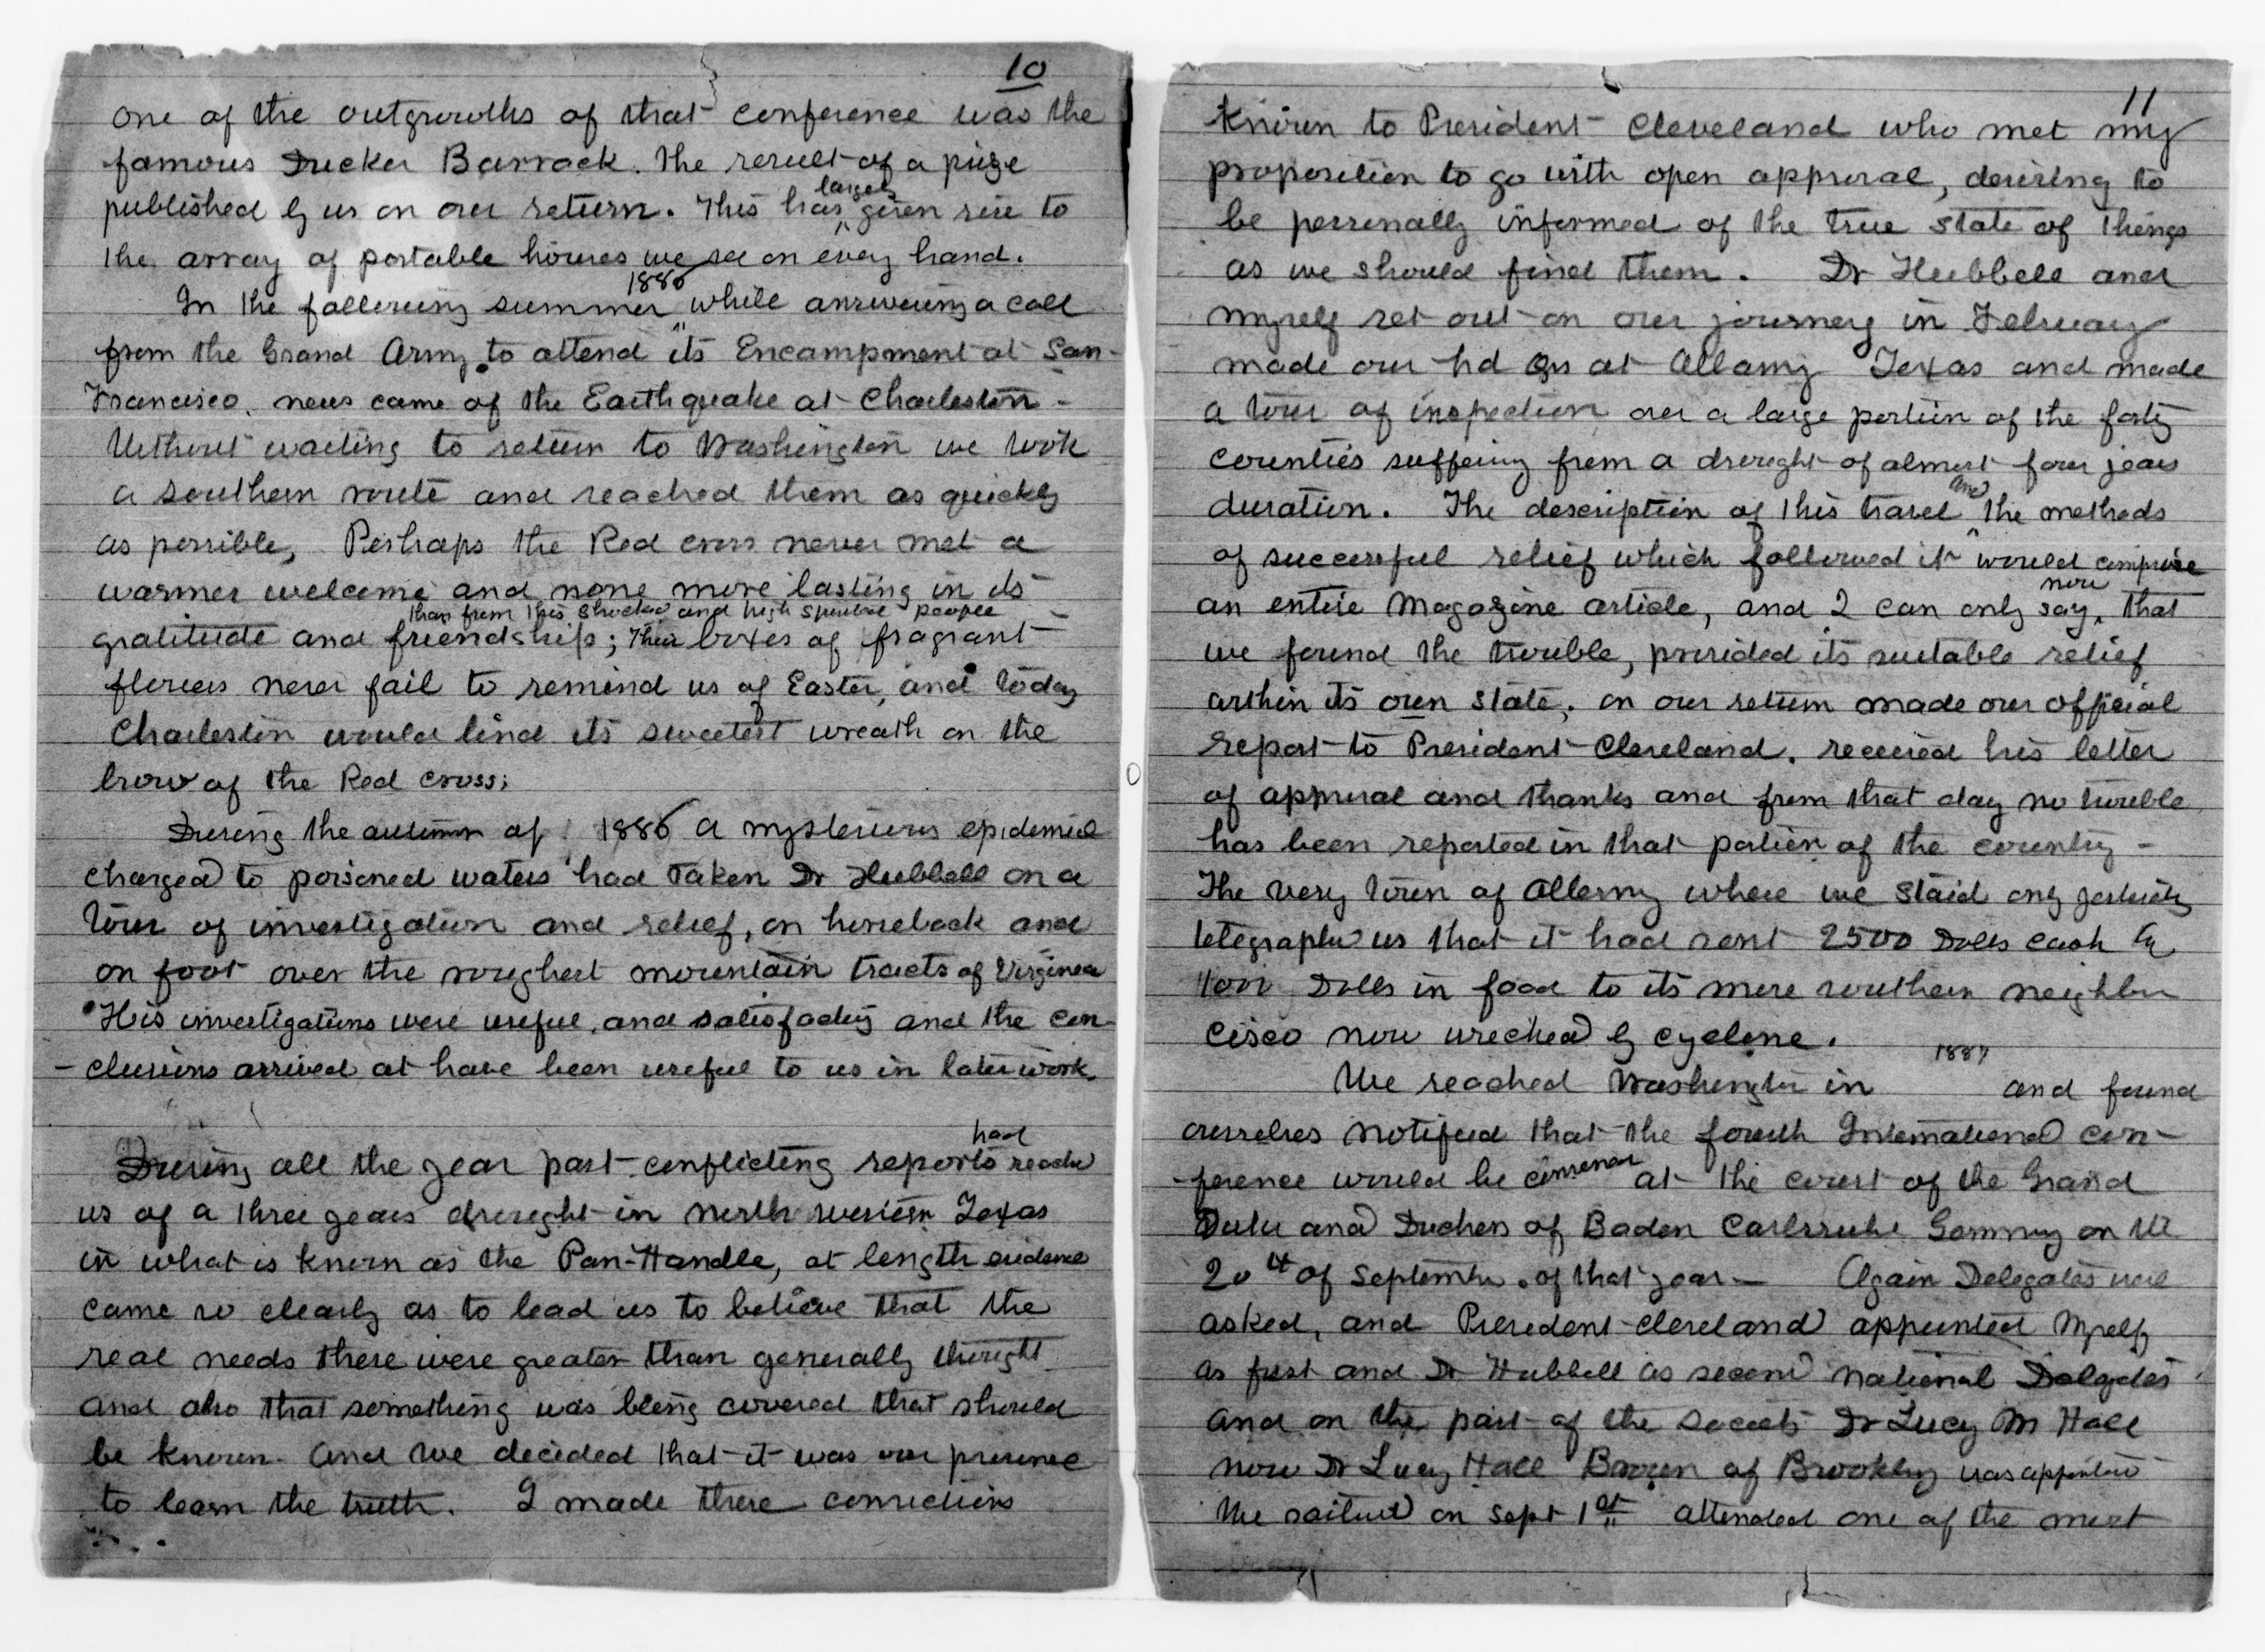 10
one of the outgrowths of that conference was the
famous Ducker Barrack. the result of a prize
published by us on our return. This has largely given rise to
the array of portable houses we see on every hand.
In the following summer 1886 while answering a call
from the Grand Army to attend its Encampment at San-
Francisco, news came of the Earthquake at Charleston -
Without waiting to return to Washington we took
a southern route and reached them as quickly
as possible, Perhaps the Red cross never met a
warmer welcome and none more lasting in its
than from this shocked and high spirited people
gratitude and friendship; their boxes of fragrant
flowers never fail to remind us of Easter, and today
Charleston would bind its sweetest wreath on the
brow of the Red cross;
During the autumn of 1886 a mysterious epidemic
charged to poisoned waters had taken Dr Hubbell on a
tour of investigation and relief, on horseback and
on foot over the roughest mountain tracts of Virginia
His investigations were useful, and satisfactory and the con-
-clusions arrived at have been useful to us in later work.
During all the year past conflicting reports had reachd
us of a three years drought in north western Texas
in what is known as the Pan-Handle, at length evidence
came so clearly as to lead us to believe that the
real needs there were greater than generally thought
and also that something was being covered that should
be known. And we decided that it was our province
to learn the truth. I made these convictions
11
known to President Cleveland who met my
proposition to go with open approval, desiring to
be personally informed of the true state of things
as we should find them. Dr Hubbell and
myself set out on our journey in February
made our hd qrs at Albany Texas and made
a tour of inspection over a large portion of the forty
counties suffering from a drought of almost four years
duration. The description of this travel and the methods
of successful relief which followed it would comprise
an entire Magazine article, and I can only now say, that
we found the trouble, provided its suitable relief
within its own state, on our return made our official
report to President Cleveland. received his letter
of approval and thanks and from that day no trouble
has been reported in that portion of the country -
The very town of Albany where we staid only yesterday
telegraphed us that it had sent 2500 Dolls cash &
Dolls in food to its more southern neighbor
Cisco now wrecked by cyclone.
We reached Washington in 1887 and found
ourselves notified that the fourth International con-
-ference would be convened at the court of the Grand
Duke and Duchess of Baden Carlsruhe Germany on the
20th of September. of that year - Again Delegates were
asked, and President Cleveland appointed Myself
as first and Dr Hubbell as second National Delegates
and on the part of the society Dr Lucy M Hall
now Dr Lucy Hall Brown of Brooklyn was appointed
We sailed on Sept 1st attended one of the most